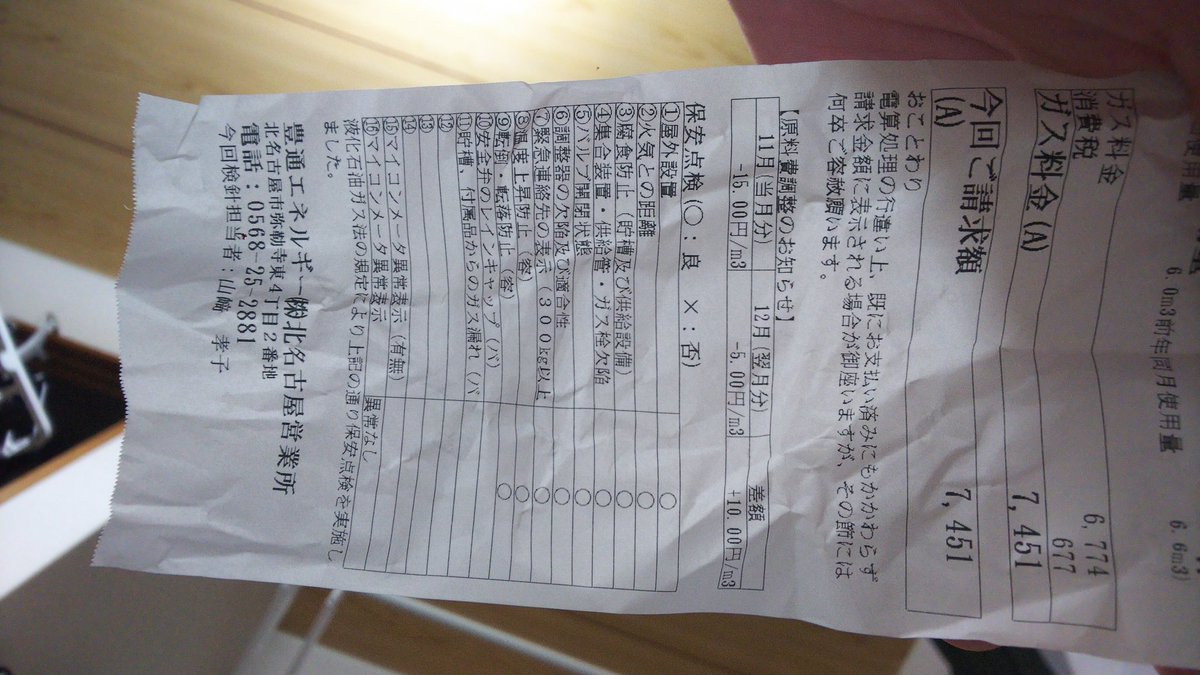 使用量 6.0m3前年同月使用量 6.6m3)
ガス料金 6,774
消費税 677
ガス料金(A) 7,451
今回ご請求額 7,451
(A)
おことわり
電算処理の行違い上、既にお支払い済みにもかかわらず
請求金額に表示される場合が御座いますが、その節には
何卒ご容赦願います。
【原料費調整のお知らせ】
11月(当月分) 12月(翌月分) 差額
-15.00円/m3 -5.00円/m3 +10.00円/m3
保安点検(○:良 ×:否)
①屋外設置 ○
②火気との距離 ○
③腐食防止(貯槽及び供給設備) ○
④集合装置・供給管・ガス栓欠陥 ○
⑤バルブ開閉状態 ○
⑥調整器の欠陥及び適合性 ○
⑦緊急連絡先の表示(300kg以上 ○
⑧温度上昇防止(容)
⑨転倒・転落防止(容) ○
⑩安全弁のレインキャップ(バ)
⑪貯槽、付属品からのガス漏れ(バ
⑫
⑬
⑭
⑮マイコンメータ異常表示(有無)
⑯マイコンメータ異常表示 異常なし
液化石油ガス法の規定により上記の通り保安点検を実施し
ました。
豊通エネルギー㈱北名古屋営業所
北名古屋市弥勒寺東4丁目2番地
電話:0568-25-2881
今回検針担当者:山﨑 孝子